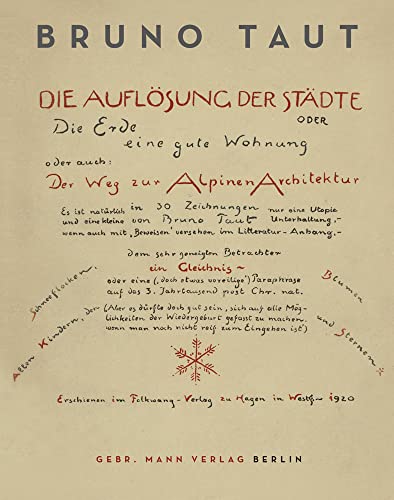 BRUNO TAUT
DIE AUFLÖSUNG DER STÄDTE
ODER
Die Erde
eine gute Wohnung
oder auch:
Der Weg zur Alpinen Architektur
Es ist natürlich in 30 Zeichnungen nur eine Utopie
und eine kleine von Bruno Taut Unterhaltung,-
wenn auch mit „Beweisen" versehen im Litteratur-Anhang.-
dem sehr geneigten Betrachter
ein Gleichnis~
oder eine (, doch etwas voreilige) Paraphrase
auf das 3. Jahrtausend post Chr. nat.
(Aber es dürfte doch gut sein, sich auf alle Mög-
lichkeiten der Wiedergeburt gefasst zu machen,
wenn man noch nicht reif zum Eingehen ist)
Allen Kindern, den
Schneeflocken,
Blumen
und Sternen
Erschienen im Folkwang-Verlag zu Hagen in Westf~ 1920
GEBR. MANN VERLAG BERLIN